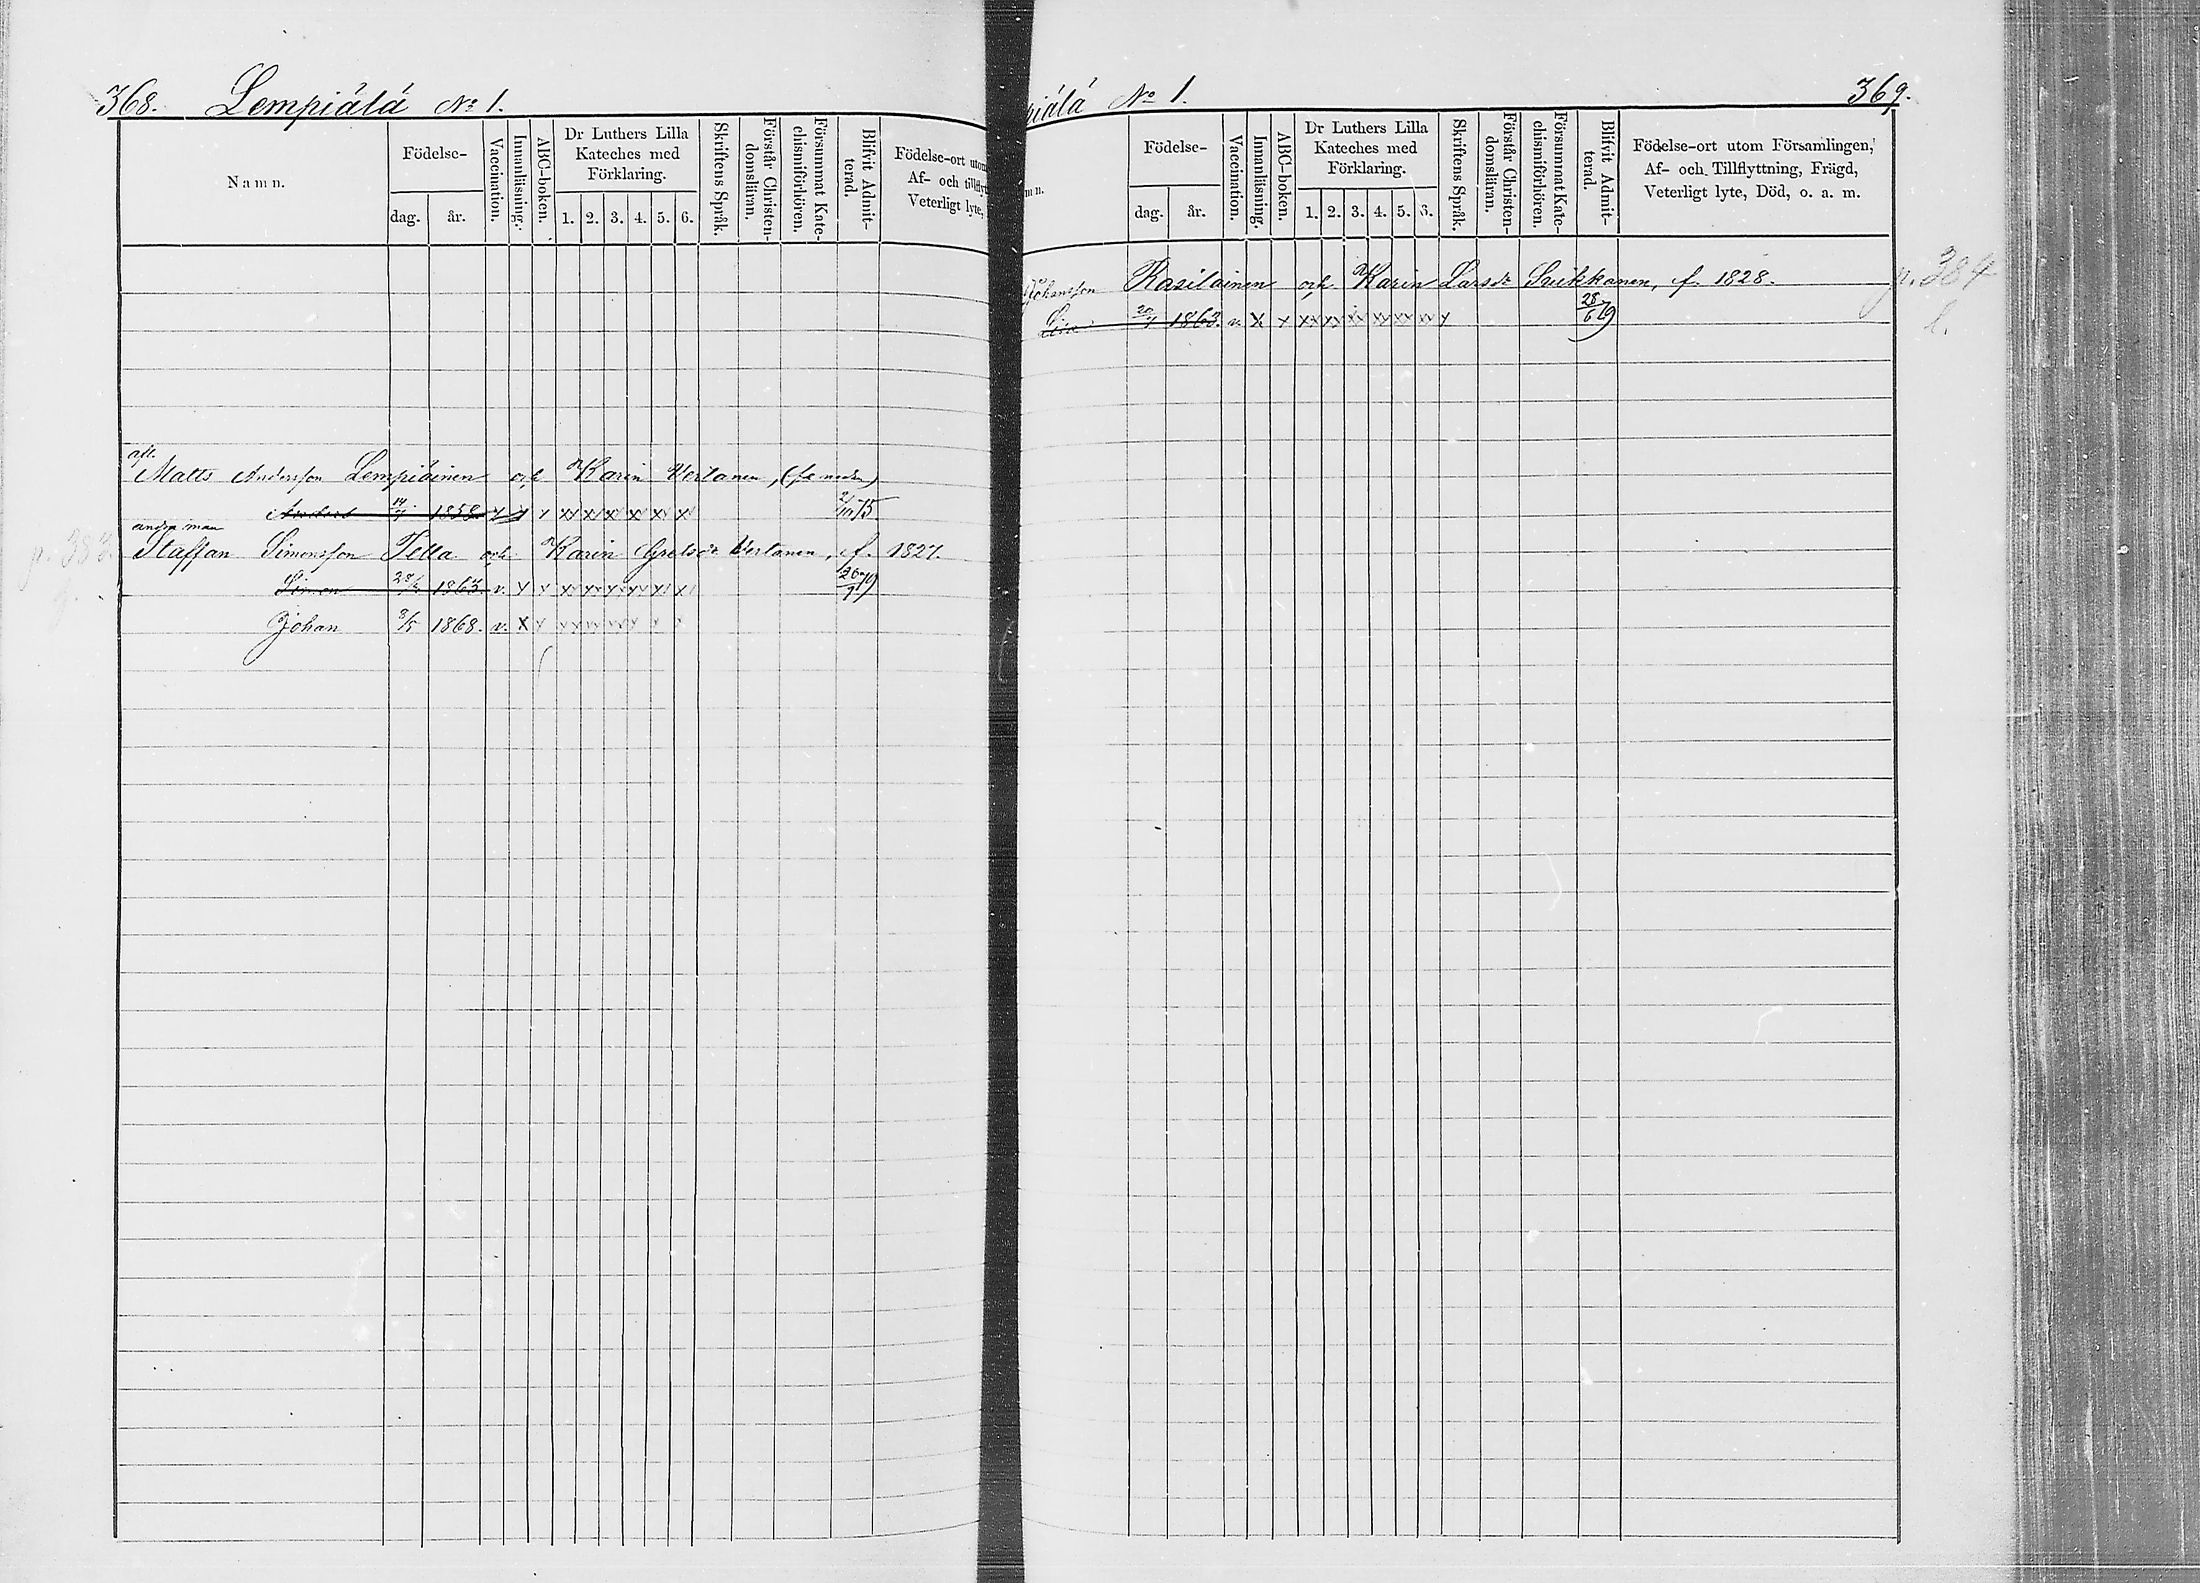 368. Lempiälä No 1.
Namn.
Födelse-
dag. år.
Vaccination.
Innanläsning.
ABC-boken.
Dr Luthers Lilla
Kateches med
Förklaring.
1. 2. 3. 4. 5. 6.
Skriftens Språk.
Förstår Christen-
domsläran.
Försummat Kate-
chismiförhören.
Blifvit Admit-
terad.
Födelse-ort utom
Af- och tillflyt
Veterligt lyte,
afl.
Matts Andersson Lempiäinen och Karin Vertanen, (se nedan)
Anders 14/4 1858 2/10 75
andra man
Staffan Simonsson Tella och Karin Vertanen, f. 1827.
Simon 1863 v. 79
Johan 3/5 1868. v.
piälä No 1. 369.
mn.
Födelse-
dag. år.
Vaccination.
Innanläsning.
ABC-boken.
Dr Luthers Lilla
Kateches med
Förklaring.
1. 2. 3. 4. 5. 6.
Skriftens Språk.
Förstår Christen-
domsläran.
Försummat Kate-
chismiförhören.
Blifvit Admit-
terad.
Födelse-ort utom Församlingen,
Af- och Tillflyttning, Frägd,
Veterligt lyte, Död, o. a. m.
Johansson Rasilainen och Karin Larsdr Suikkanen, f. 1828. p. 384
Lisa 1863. v. 28/6 79 l.